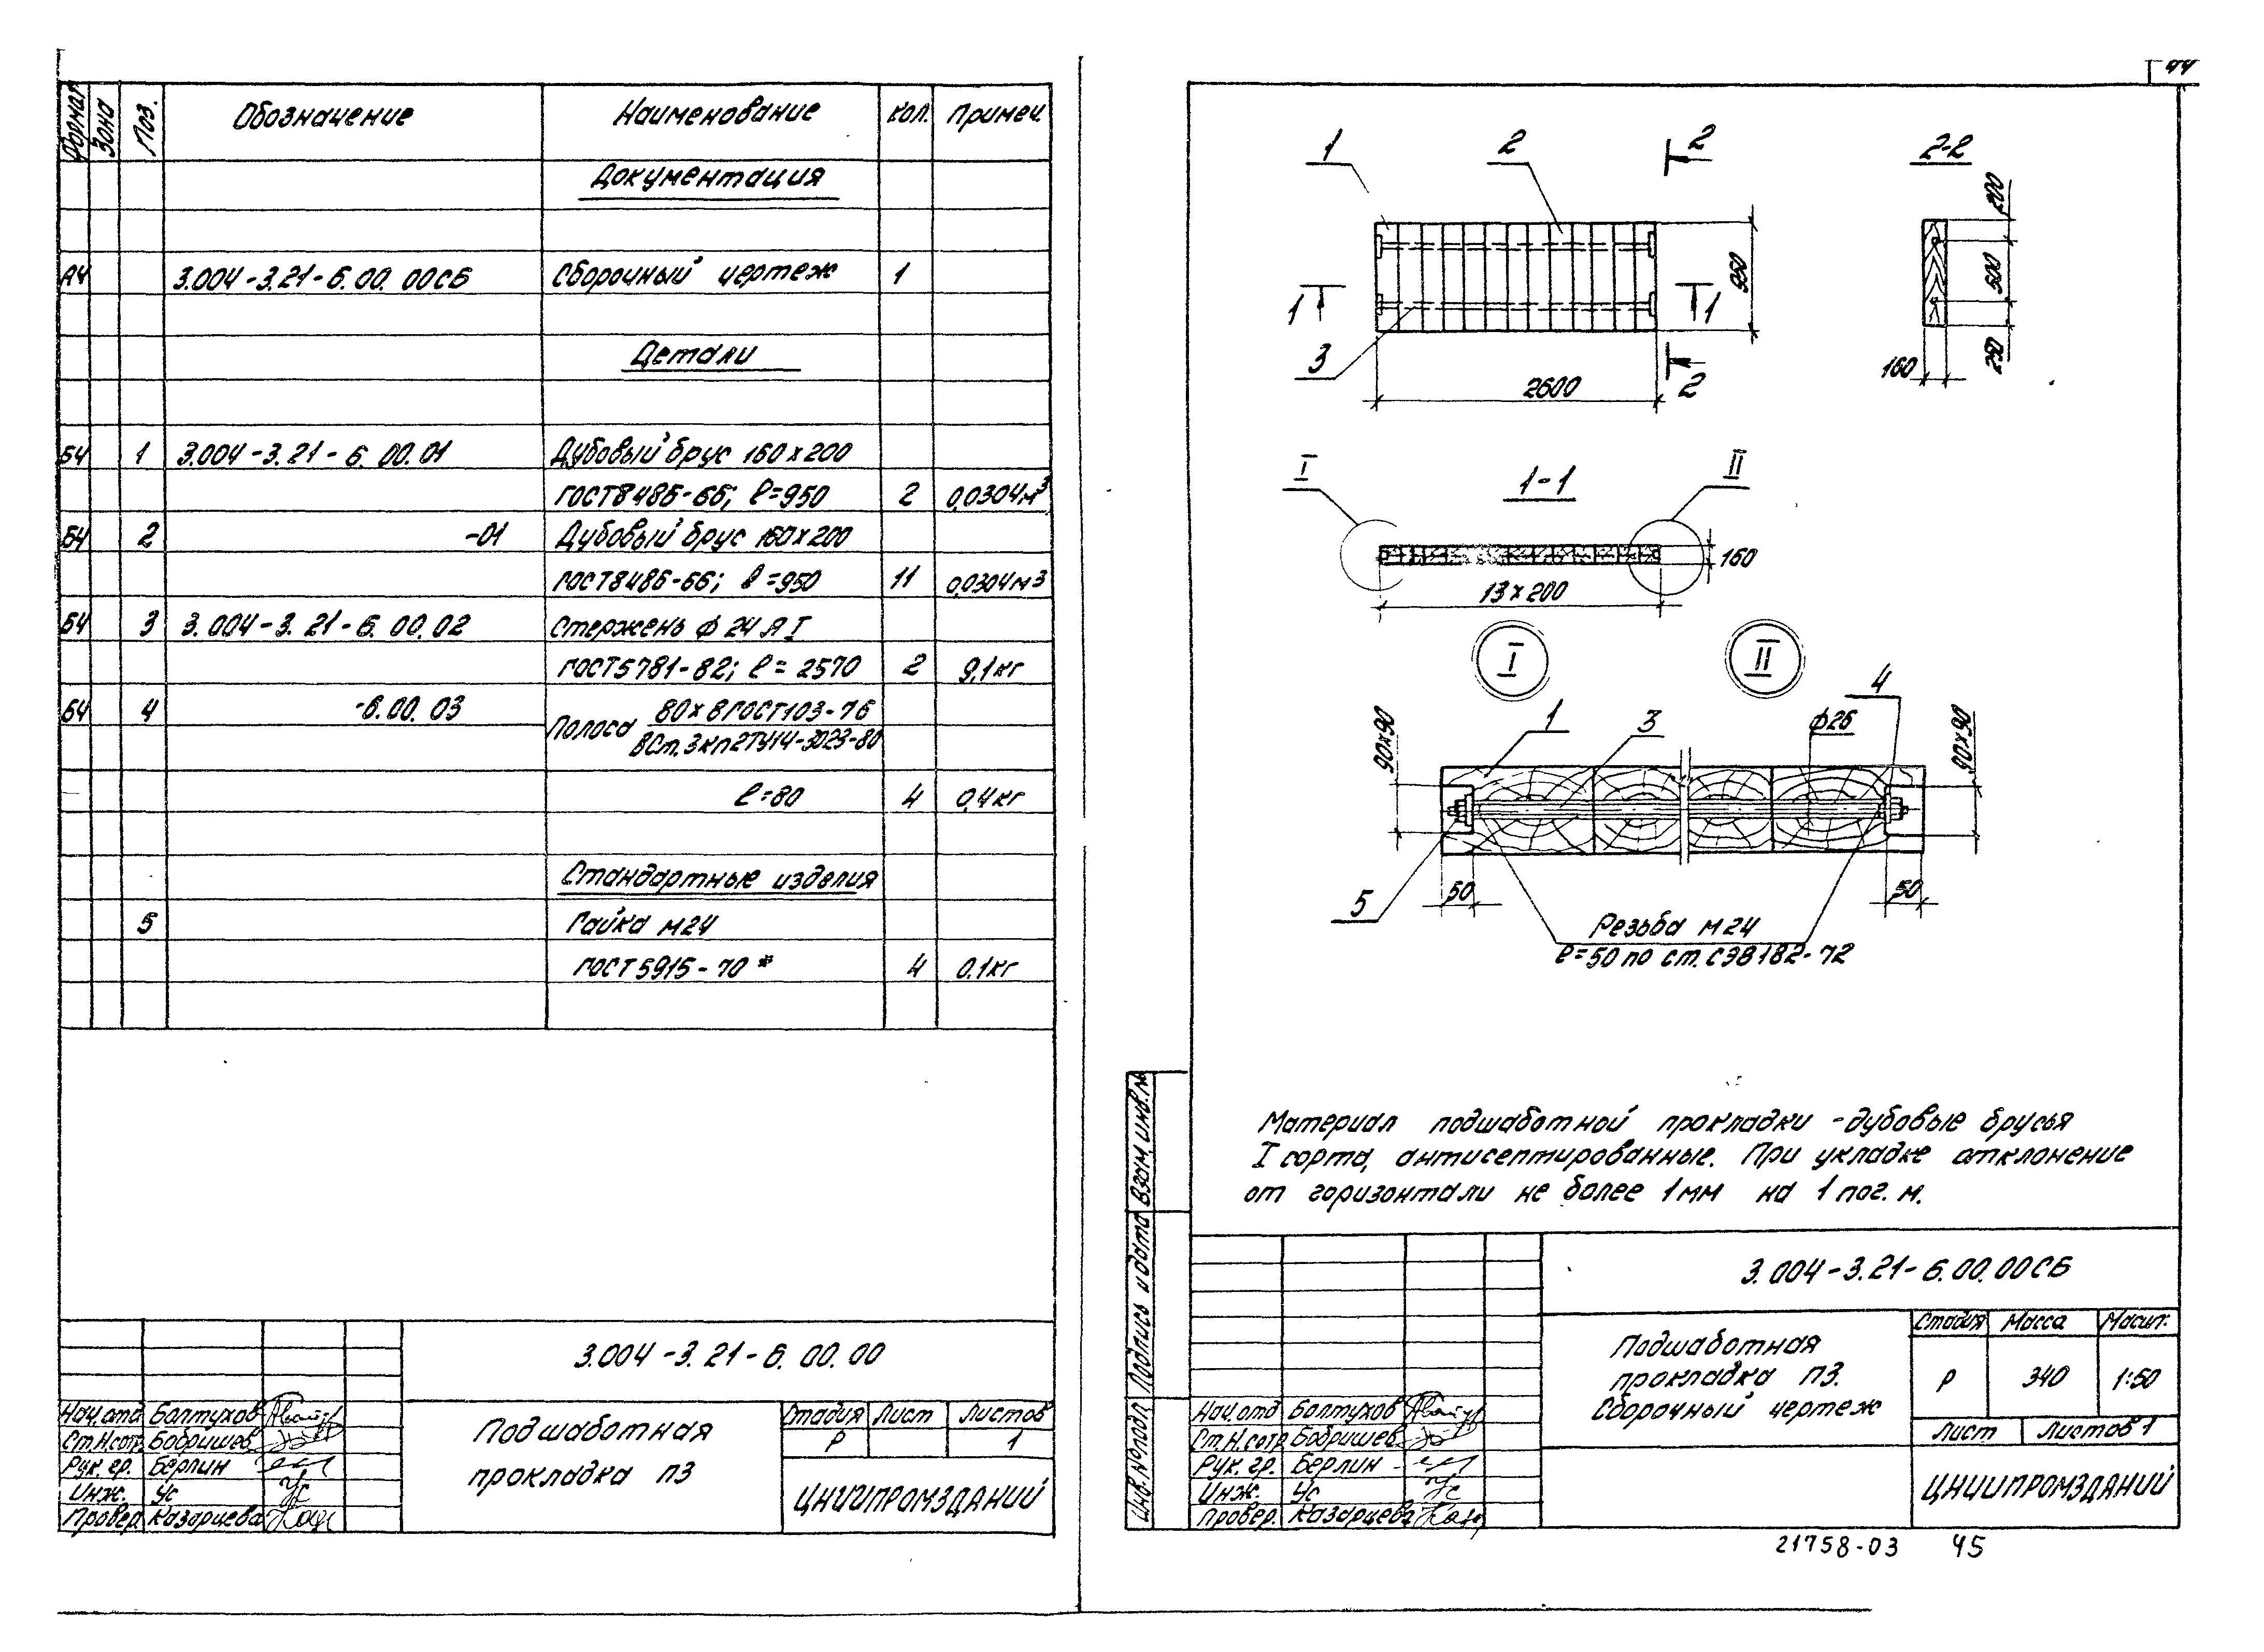 Формат Зона Поз. Обозначение Наименование Кол. Примеч.
Документация
А4 3.004-3.21-6.00.00СБ Сборочный чертеж 1
Детали
Б4 1 3.004-3.21-6.00.01 Дубовый брус 160х200
ГОСТ8486-66; ℓ=950 2 0,0304м³
Б4 2 -01 Дубовый брус 160х200
ГОСТ8486-66; ℓ=950 11 0,0304м³
Б4 3 3.004-3.21-6.00.02 Стержень ф 24 А I
ГОСТ5781-82; ℓ= 2570 2 9,1кг
Б4 4 -6.00.03 Полоса 80х8ГОСТ103-76
ВСт.3кп2ТУ14-3023-80
ℓ=80 4 0,4кг
Стандартные изделия
5 Гайка М24
ГОСТ5915-70* 4 0.1кг
3.004-3.21-6.00.00
Нач.отд Болтухов
Ст.Н.сотр Бобришев
Рук.гр. Берлин
Инж. Ус
Провер. Казарцева
Подшаботная
прокладка п3
Стадия Лист Листов
Р 1
ЦНИИПРОМЗДАНИЙ
44
1 2 2 2-2
200
950 500
1 1
3 250
160
2600 2
I 1-1 II
160
13х200
I II
4
1 3 ф26
90х90 90х90
5 50 50
Резьба М24
ℓ=50 по ст. СЭВ182-72
Материал подшаботной прокладки - дубовые брусья
I сорта, антисептированные. При укладке отклонение
от горизонтали не более 1мм на 1 пог. м.
Инв.№подл. Подпись и дата Взам.инв.№
3.004-3.21-6.00.00СБ
Подшаботная
прокладка п3.
Сборочный чертеж
Стадия Масса Масшт.
Р 340 1:50
Лист Листов 1
Нач.отд Болтухов
Ст.Н.сотр Бобришев
Рук.гр. Берлин
Инж. Ус
Провер. Казарцева
ЦНИИПРОМЗДАНИЙ
21758-03 45